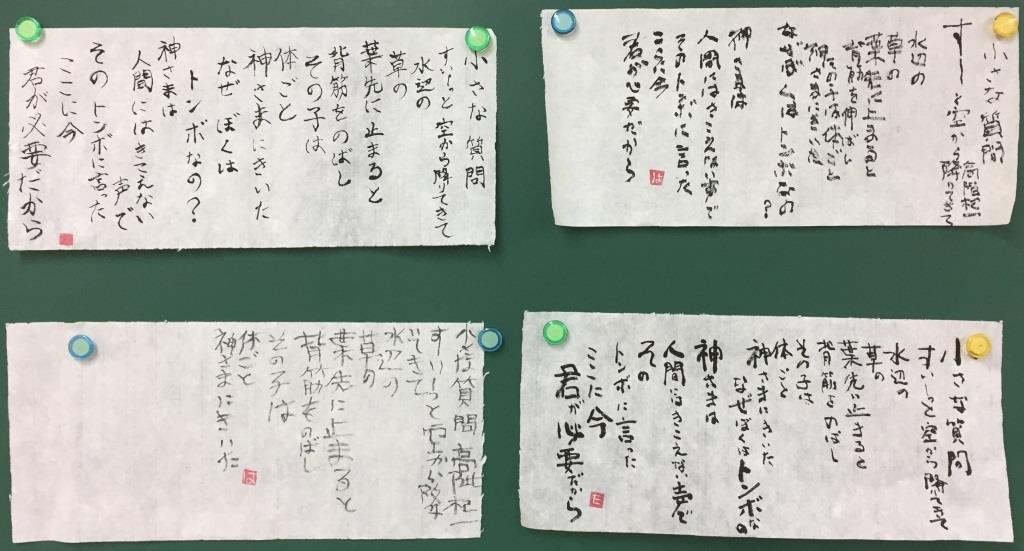 小さな質問
すいーっと空から降りてきて
水辺の
草の
葉先に止まると
背筋をのばし
その子は
体ごと
神さまにきいた
なぜ ぼくは
トンボなの?
神さまは
人間にはきこえない
声で
そのトンボに言った
ここに今
君が必要だから
小さな質問
高階杞一
すーーっと空から降りてきて
水辺の
草の
葉先に止まると
背筋を伸ばし
その子は体ごと
神さまにきいた
なぜぼくはトンボなの
?
神さまは
人間にはきこえない声で
そのトンボに言った
ここに今
君が必要だから
は
小さな質問 高階杞一
すいーっと空から降り
てきて
水辺の
草の
葉先に止まると
背筋をのばし
その子は
体ごと
神さまにきいた
は
小さな質問
すいーっと空から降りてきて
水辺の
草の
葉先に止まると
背筋をのばし
その子は
体ごと
神さまにきいた
なぜぼくはトンボなの
神さまは
人間にはきこえない声で
その
トンボに言った
ここに今
君が必要だから
た